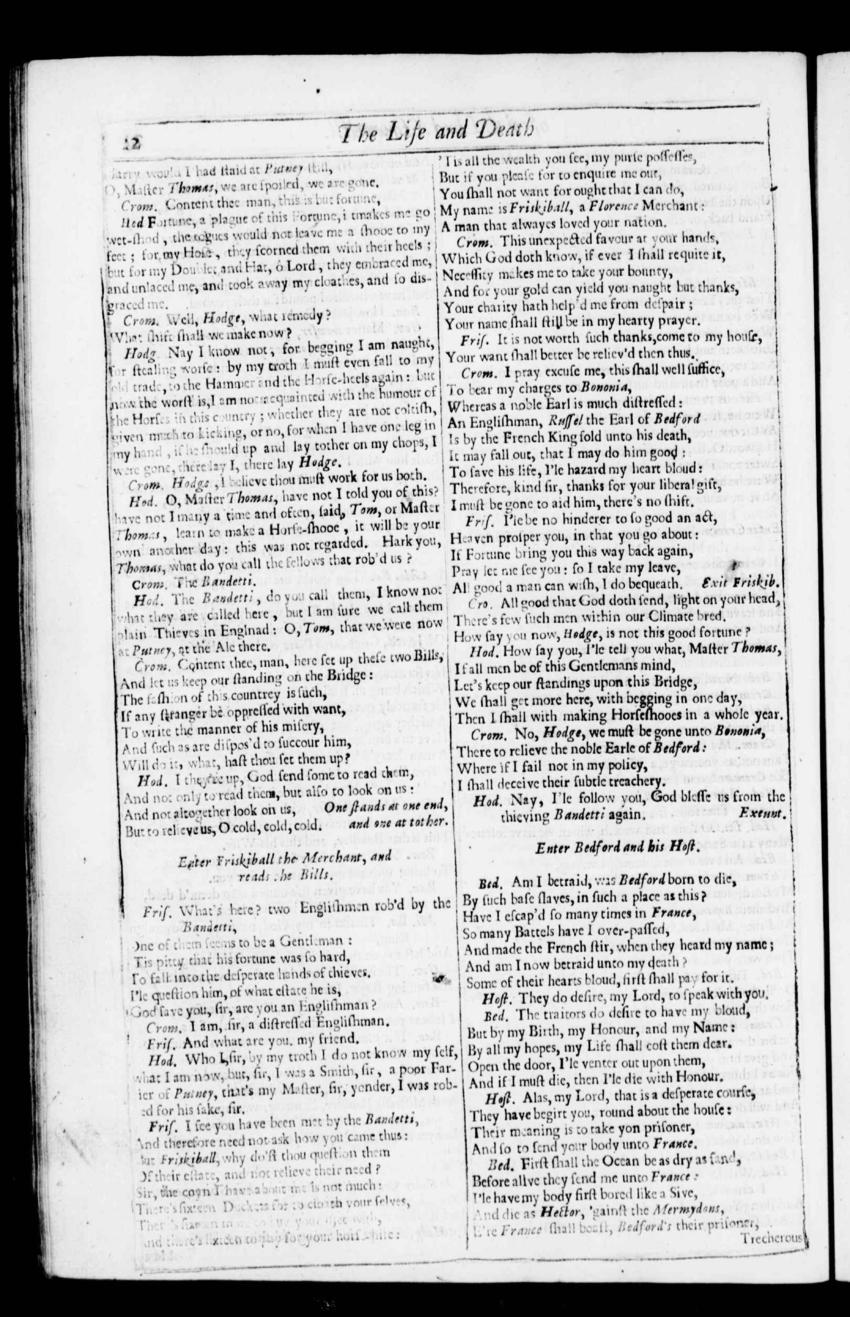 12
The Life and Death
would I had ſtaid at Putney ſtill,
O, Maſter Thomas, we are ſpoiled, we are gone.
Crom. Content thee man, this is but fortune,
Hod Fortune, a plague of this Fortune, it makes me go
wet-ſhod, the rogues would not leave me a ſhooe to my
feet; for my Hoſe, they ſcorned them with their heels;
but for my Doublet and Hat, ô Lord, they embraced me,
and unlaced me, and took away my cloathes, and ſo diſ-
graced me.
Crom. Well, Hodge, what remedy?
What ſhift ſhall we make now?
Hodg Nay I know not, for begging I am naught,
for ſtealing worſe: by my troth I muſt even fall to my
old trade, to the Hammer and the Horſe-heels again: but
now the worſt is, I am not acquainted with the humour of
the Horſes in this country; whether they are not coltiſh,
given much to kicking, or no, for when I have one leg in
my hand, if he ſhould up and lay tother on my chops, I
were gone, there lay I, there lay Hodge.
Crom. Hodge, I believe thou muſt work for us both.
Hod. O, Maſter Thomas, have not I told you of this?
have not I many a time and often, ſaid, Tom, or Maſter
Thomas, learn to make a Horſe-ſhooe, it will be your
own another day: this was not regarded. Hark you,
Thomas, what do you call the fellows that rob'd us?
Crom. The Bandetti.
Hod. The Bandetti, do you call them, I know not
what they are called here, but I am ſure we call them
plain Thieves in Englnad: O, Tom, that we were now
at Putney, at the Ale there.
Crom. Content thee, man, here ſet up theſe two Bills,
And let us keep our ſtanding on the Bridge:
The faſhion of this countrey is ſuch,
If any ſtranger be oppreſſed with want,
To write the manner of his miſery,
And ſuch as are diſpos'd to ſuccour him,
Will do it, what, haſt thou ſet them up?
Hod. I they're up, God ſend ſome to read them,
And not only to read them, but alſo to look on us:
And not altogether look on us, One ſtands at one end,
But to relieve us, O cold, cold, cold. and one at tother.
Enter Friskiball the Merchant, and
reads the Bills.
Friſ. What's here? two Engliſhmen rob'd by the
Bandetti,
One of them ſeems to be a Gentleman:
Tis pitty that his fortune was ſo hard,
To fall into the deſperate hands of thieves.
I'le queſtion him, of what eſtate he is,
God ſave you, ſir, are you an Engliſhman?
Crom. I am, ſir, a diſtreſſed Engliſhman.
Friſ. And what are you, my friend.
Hod. Who I, ſir, by my troth I do not know my ſelf,
what I am now, but, ſir, I was a Smith, ſir, a poor Far-
ier of Putney, that's my Maſter, ſir, yonder, I was rob-
ed for his ſake, ſir.
Friſ. I ſee you have been met by the Bandetti,
And therefore need not ask how you came thus:
But Friskiball, why do'ſt thou queſtion them
Of their eſtate, and not relieve their need?
Sir, the coyn I have about me is not much:
There's ſixteen Duckets for to cloath your ſelves,
your diet with,
And there's ſixteen to pay for your horſ
'Tis all the wealth you ſee, my purſe poſſeſſes,
But if you pleaſe for to enquire me out,
You ſhall not want for ought that I can do,
My name is Friskiball, a Florence Merchant:
A man that alwayes loved your nation.
Crom. This unexpected favour at your hands,
Which God doth know, if ever I ſhall requite it,
Neceſſity makes me to take your bounty,
And for your gold can yield you naught but thanks,
Your charity hath help'd me from deſpair;
Your name ſhall ſtill be in my hearty prayer.
Friſ. It is not worth ſuch thanks, come to my houſe,
Your want ſhall better be reliev'd then thus.
Crom. I pray excuſe me, this ſhall well ſuffice,
To bear my charges to Bononia,
Whereas a noble Earl is much diſtreſſed:
An Engliſhman, Ruſſel the Earl of Bedford
Is by the French King ſold unto his death,
It may fall out, that I may do him good:
To ſave his life, I'le hazard my heart bloud:
Therefore, kind ſir, thanks for your liberal gift,
I muſt be gone to aid him, there's no ſhift.
Friſ. I'le be no hinderer to ſo good an act,
Heaven proſper you, in that you go about:
If Fortune bring you this way back again,
Pray let me ſee you: ſo I take my leave,
All good a man can wiſh, I do bequeath. Exit Friskib.
Cro. All good that God doth ſend, light on your head,
There's few ſuch men within our Climate bred.
How ſay you now, Hodge, is not this good fortune?
Hod. How ſay you, I'le tell you what, Maſter Thomas,
If all men be of this Gentlemans mind,
Let's keep our ſtandings upon this Bridge,
We ſhall get more here, with begging in one day,
Then I ſhall with making Horſeſhooes in a whole year.
Crom. No, Hodge, we muſt be gone unto Bononia,
There to relieve the noble Earle of Bedford:
Where if I fail not in my policy,
I ſhall deceive their ſubtle treachery.
Hod. Nay, I'le follow you, God bleſſe us from the
thieving Bandetti again. Exeunt.
Enter Bedford and his Hoſt.
Bed. Am I betraid, was Bedford born to die,
By ſuch baſe ſlaves, in ſuch a place as this?
Have I eſcap'd ſo many times in France,
So many Battels have I over-paſſed,
And made the French ſtir, when they heard my name;
And am I now betraid unto my death?
Some of their hearts bloud, firſt ſhall pay for it.
Hoſt. They do deſire, my Lord, to ſpeak with you.
Bed. The traitors do deſire to have my bloud,
But by my Birth, my Honour, and my Name:
By all my hopes, my Life ſhall coſt them dear.
Open the door, I'le venter out upon them,
And if I muſt die, then I'le die with Honour.
Hoſt. Alas, my Lord, that is a deſperate courſe,
They have begirt you, round about the houſe:
Their meaning is to take yon priſoner,
And ſo to ſend your body unto France.
Bed. Firſt ſhall the Ocean be as dry as ſand,
Before alive they ſend me unto France:
I'le have my body firſt bored like a Sive,
And die as Hector, 'gainſt the Mermydons,
E're France ſhall boaſt, Bedford's their priſoner,
Trecherous